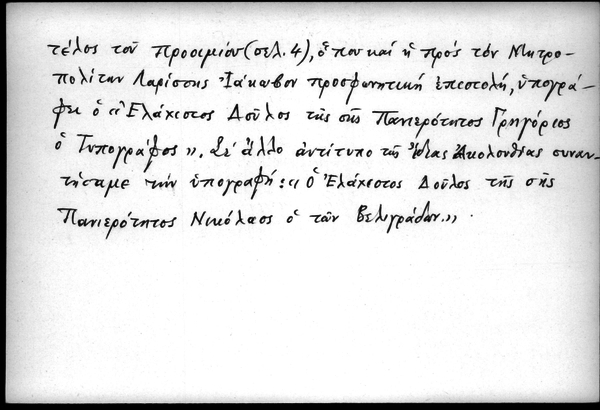 τέλος τοῦ προοιμίου (σελ. 4), ὅπου καί ἡ πρός τόν Μητρο-
πολίτην Λαρίσης Ἰάκωβον προσφωνητική ἐπιστολή, ὑπογρά-
φει ὁ «Ἐλάχιστος Δοῦλος τῆς σῆς Πανιερότητος Γρηγόριος
ὁ Τυπογράφος». Σέ ἄλλο ἀντίτυπο τῆς ἴδιας Ἀκολουθίας συναν-
τήσαμε τήν ὑπογραφή: «Ὁ Ἐλάχιστος Δοῦλος τῆς σῆς
Πανιερότητος Νικόλαος ὁ τῶν Βελιγράδων.»